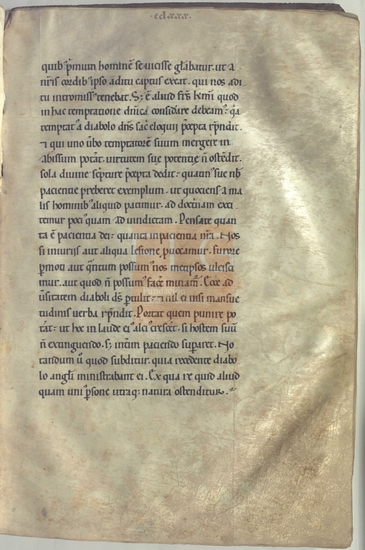 ·cclxxx·
quib p̄mum hominē se uicisse gl̄abatur. ut a
nr̄is cordib ipso aditu captus exeat. qui nos adi
tu intromissꝰ tenebat. Sꝫ ē aliud fr̄s kr̄mi quod
in hac temptatione dn̄ica considare debeam. qa
temptatꝰ a diabolo dn̄s sac̄ eloquii p̄cepta rp̄ndit.
⁊ qui uno ūbo temptatorē suum mergere in
abissum potat. uirtutem sue potentie n̄ ostendit.
sola diuine scripture p̄cepta dedit. quatin sue nb̄
pacientie preberet exemplum. ut quociens a ma
lis hominib aliquid patimur. ad doctnam exci
temur poci quam ad uindictam. Pensate quan
ta ē pacientia dei. quanta inpacientia nr̄a. Nos
si iniuriis aut aliqua lesione puocamur. furore
p̄moti aut qn̄tum possum nos metipsos ulcisci
mur. aut quod n̄ possum facē minam. Ecce ad
ūsitatem diaboli dn̄s p̄tulit. ⁊ nil ei nisi mansue
tudinis uerba rp̄ndit. Portat quem punire po
tat. ut hoc in laude ei alci cresceret. si hostem suū
n̄ extinguendo. sꝫ intim paciendo supaaret. No
tandum ū quod subditur. quia recedente diabo
lo angl̄i ministrabant ei. Ex qua re quid aliud
quam uni p̄sone utraq natura ostenditur.